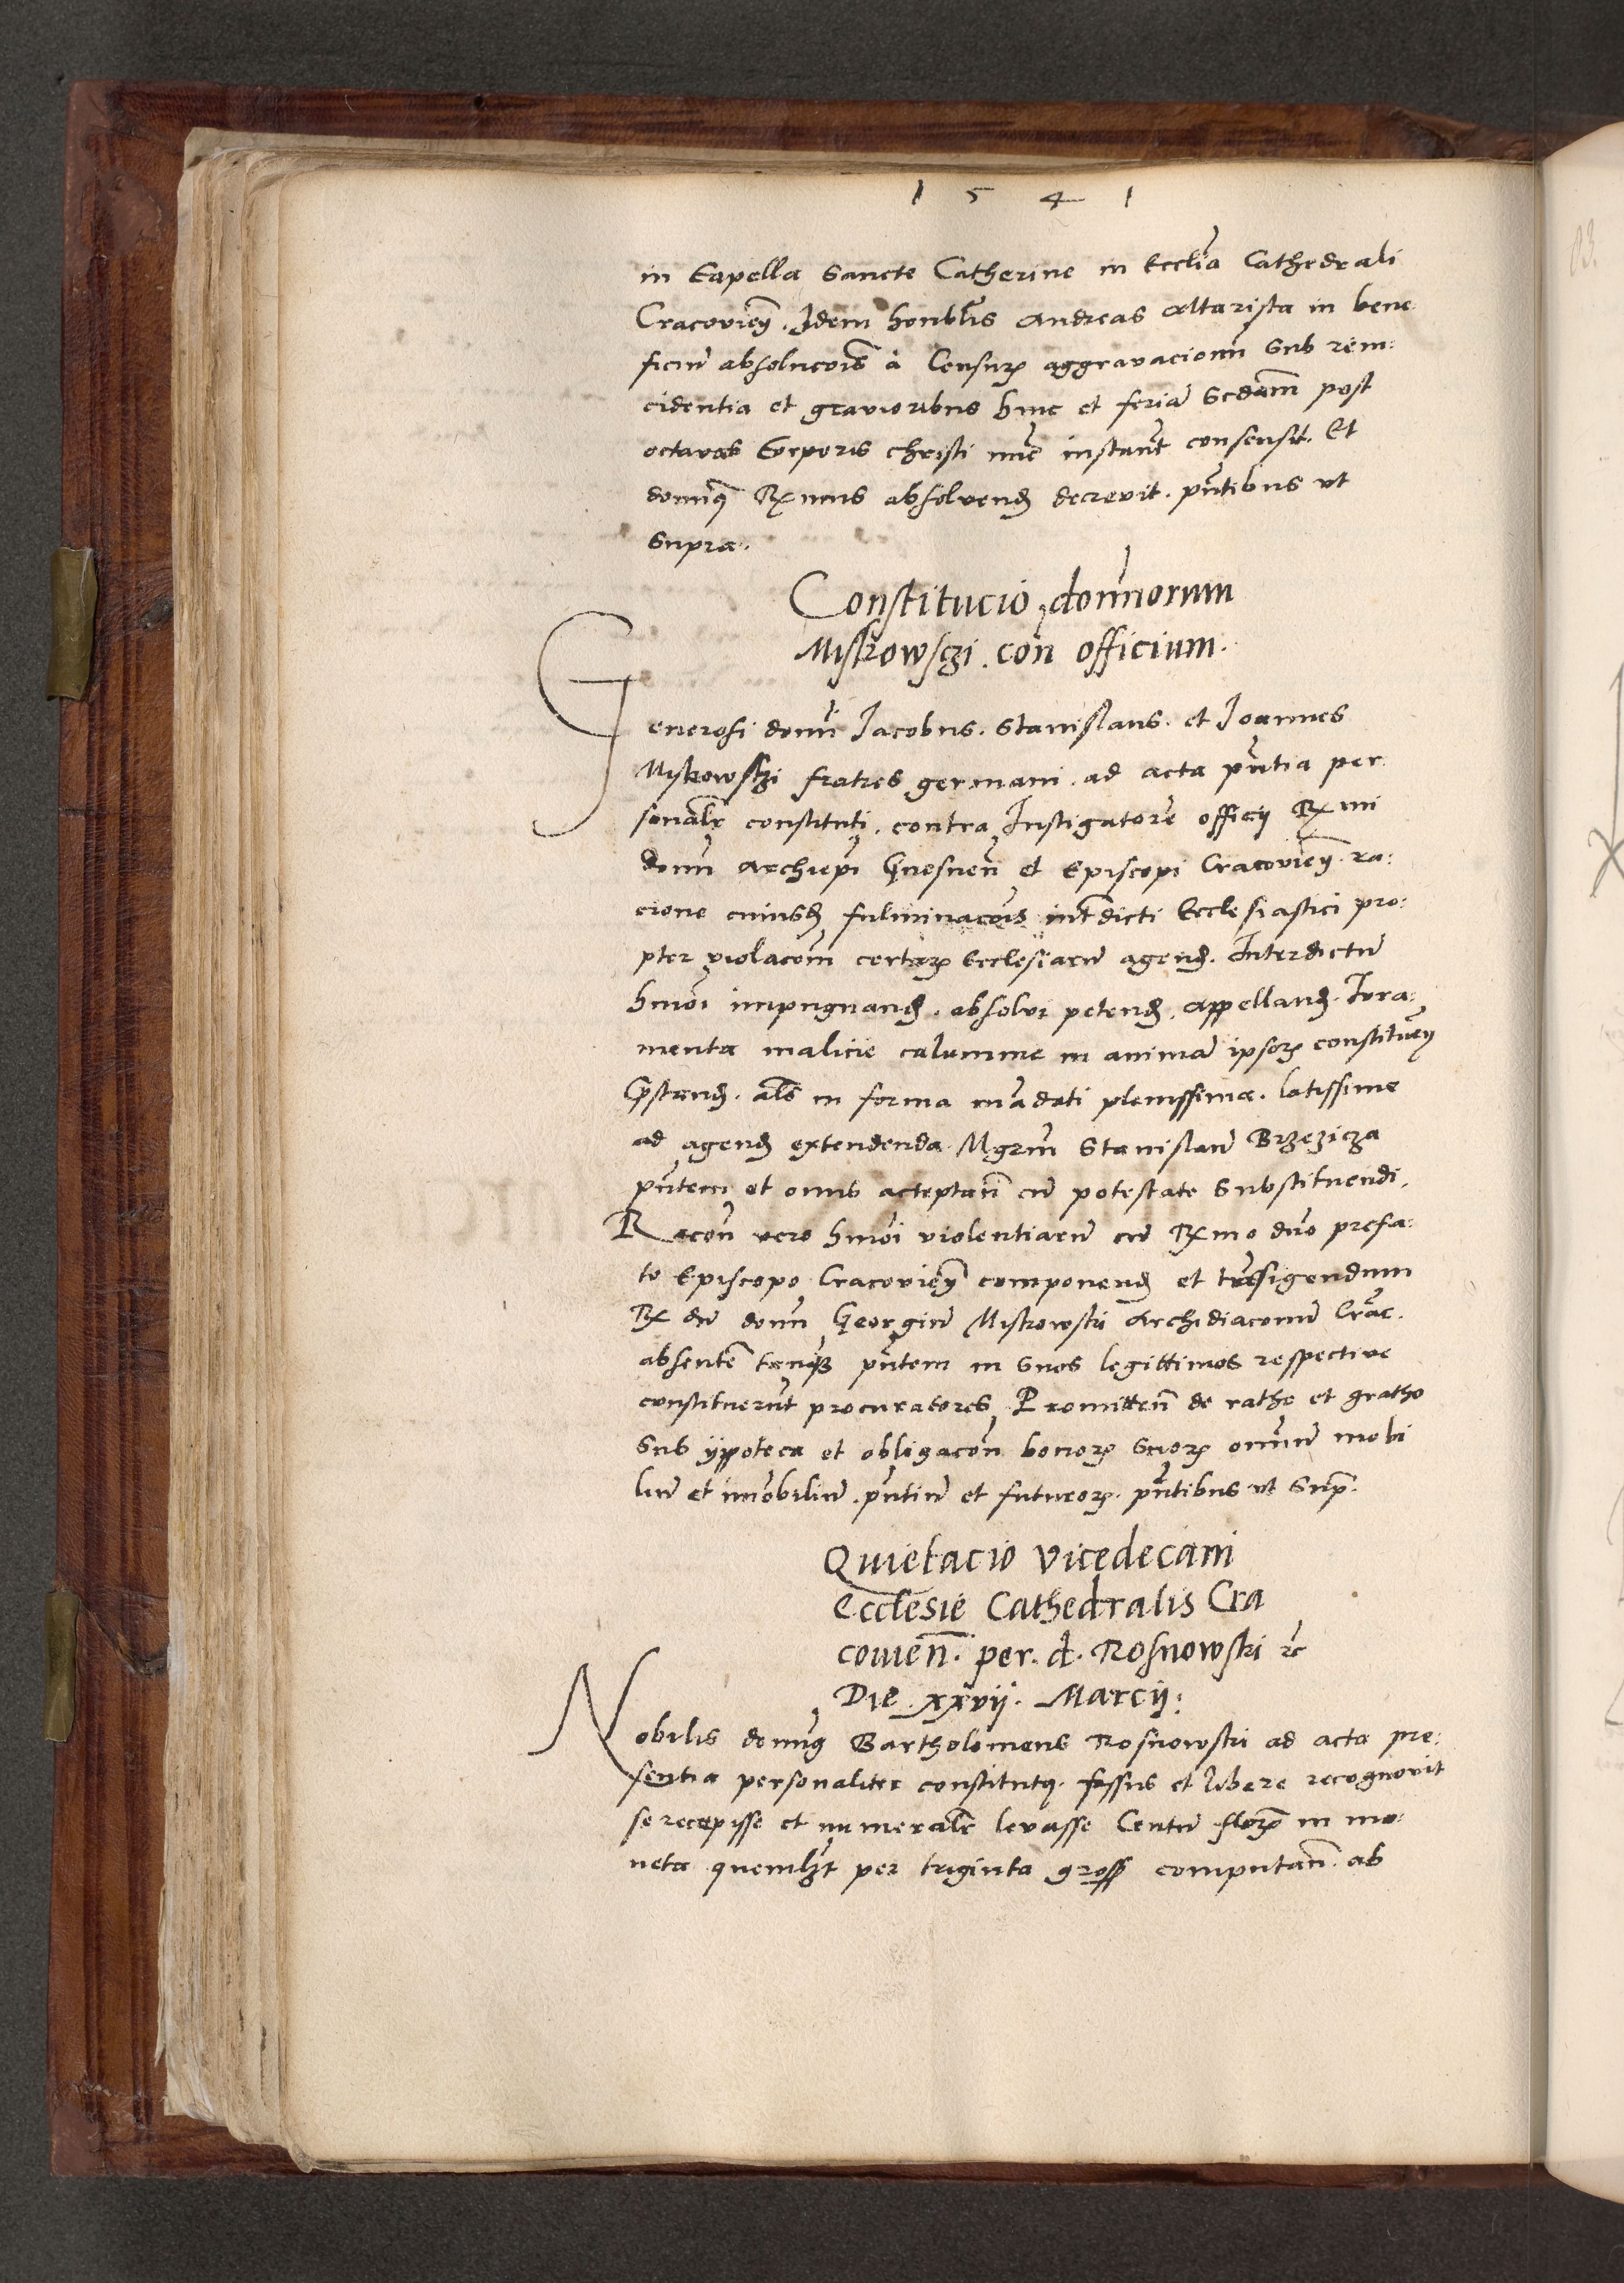 1 5 4 1
in Capella Sancte Catherine in Eccl̃ia Cathedrali
Cracovien̄. Idem honbl̃is Andreas altarista in bene
ficiũ absolucõis à Censurꝝ aggravacioni sub rein:
cidentia et gravioribus hinc et feriã Scdãm post
octavas Corporis christi nũc instañt consensit. Et
domiñꝯ Rx mus absolvenđ decrevit. p̃ntibus ut
supra.
Constitucio dom̃norum
Miskowsczi con officium.
Generosi domñi Jacobus. Stanislaus. et Joannes
Miskowsczi fratres germani. ad acta p̃ntia per
sonalr̃ constituti. contra Instigatorẽ officij Rx mi
domñi Archiep̃i Gnesneñ et Episcopi Cracovieñ. ra:
cione cuiusđ fulminacõis int̃dicti Ecclesiastici pro:
pter violacõm certarꝝ Ecclesiarũ agenđ. Interdictũ
hm̃oi impugnanđ. absolvi petenđ. Appellanđ. Jura:
menta malicie calumnie in animã ipsorꝝ constituẽñ
p̃standđ. als̃ in forma mãdati plenissima. latissime
ad agenđ extendenda. Mgrm̃ Stanislaũ Brzezicza
p̃ntem et onus acceptañ cũ potestate substituendi.
Racõñ vero hm̃oi violentiarũ cũ Rx mo dño prefa:
to Episcopo Cracovieñ componenđ et trãsigendum
Rx dũ domñ Georgiũ Miskowski Archidiaconũ Crãc.
absentẽ tanꝗ̃ p̃ntem in suos legittimos respective
constituerũt procuratores. Promitteñ de ratho et gratho
sub ypoteca et obligacõñ bonorꝝ suorꝝ omñiũ mobi
liũ et im̃obiliũ. p̃ntiũ et futurorꝝ. p̃ntibus ut sup̃.
Quietacio vicedecani
Ecclesie Cathedralis Cra
covien̄. per. d. Rosnowski ⁊c̃
Die. xxvij. Marcij.
Nobilis domiñꝯ Bartholomeus Rosnowski ad acta pre:
sentia personaliter constitutꝯ. fassus et libere recognovit
se recepisse et numeralr̃ levasse Centũ florꝝ in mo:
neta quemlꝫt per triginta gross computañ. ab